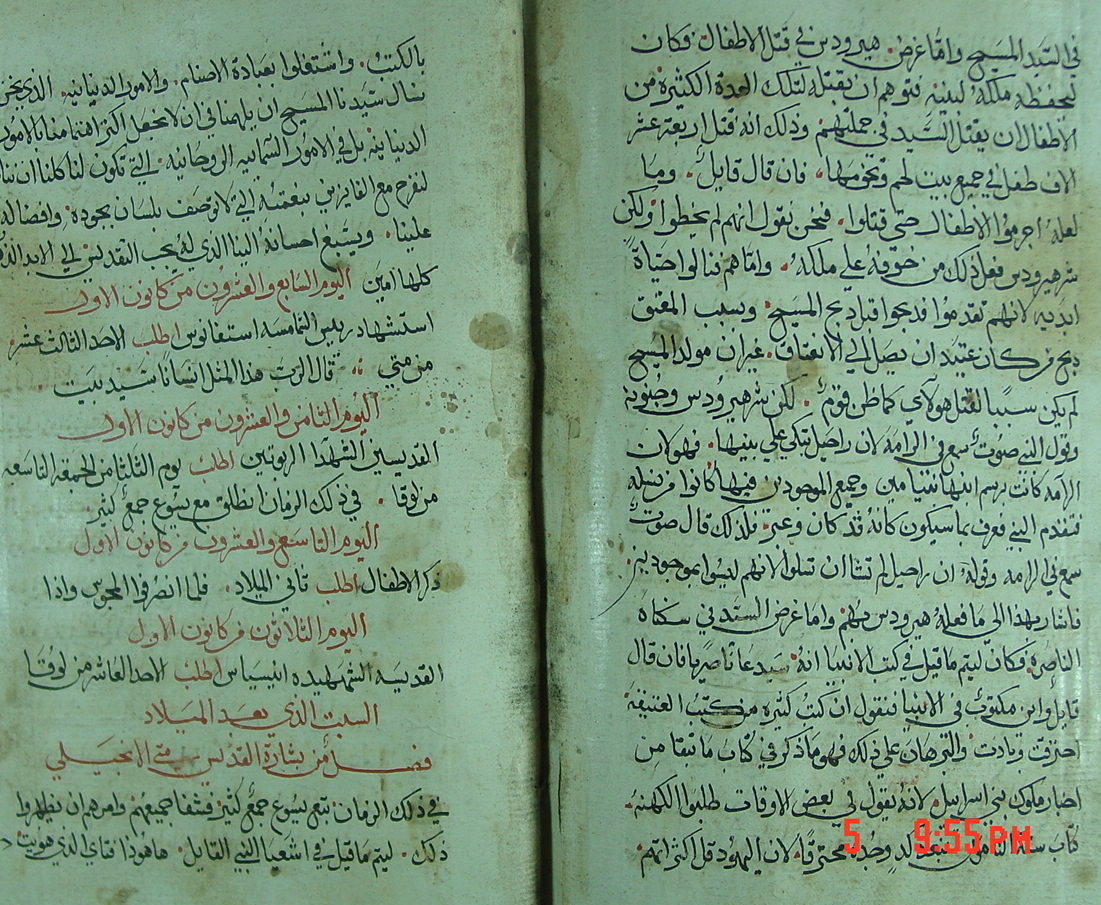 في السيد المسيح واما غرض هيرودس في قتل الاطفال فكان
ليحفظ ملكه لبنيه فتوهم ان بقتله لتلك العدة الكثيرة من
الاطفال ان يقتل السيد في جملتهم وذلك انه قتل اربعة عشر
الاف طفل في جميع بيت لحم وتخومها فان قال قايل وما
لعله اجرموا الاطفال حتى قتلوا فنحن نقول انهم لم يخطوا ولكن
شر هيرودس فعل ذلك من خوفه علي ملكه واما هم فنالوا حياة
ابديه لانهم تقدموا فدبحوا قبل دبح المسيح وبسبب المعتق
دبح من كان عتيد ان يصل الي الانعتاق غير ان مولد المسيح
لم يكن سببا لقتل هولاي كما ظن قوم لكن شر هيرودس وجنونه
وقول النبي صوت سمع في الرامه لان راحيل تبكي علي بنيها فهولان
الرامه كانت برسم ابنها بنيامين وجميع الموجودين فيها كانوا من نسله
فتقدم النبي فعرف بما سيكون كانه قد كان وعبر فلذلك قال صوت
سمع في الرامه وقوله ان راحيل لم تشا ان تسلوا لانهم ليسوا بموجودين
فاشار بهذا الي ما فعله هيرودس بهم واما غرض السيد في سكناه
الناصره فكان ليتم ما قيل في كتب الانبيا انه سيدعا ناصريا فان قال
قايل واين مكتوب في الانبيا فنقول ان كتب كثيره من كتب العتيقه
احترقت وبادت والبرهان علي ذلك فهو ما ذكر في كتاب ما تبقا من
اخبار ملوك بني اسراييل لانه يقول في بعض الاوقات طلبوا الكهنه
كتاب سنة الناموس فبعد الد وجده محترقا لان اليهود قل اكثراتهم
5 9:55 PM
بالكتب واشتغلوا بعبادة الاصنام والامور الدنيانيه الذي نحن
نسال سيدنا المسيح ان يلهمنا في ان لا نجعل اكثر اهتمامنا بالامور
الدنيانيه بل في الامور السمايية الروحانيه التي تكون لنا كلنا ان
لنفرح مع الفايزين بنعمته التي لا توصف بلسان بجوده وافضاله
علينا ويسبغ احسانه الينا الذي له يجب التقديس الي الابد
كلها امين اليوم السابع والعشرون من كانون الاول
استشهاد رييس الشمامسه استفانوس اطلب الاحد الثالث عشر
من متي قال الرب هذا المثل انسانا سيد بيت
اليوم الثامن والعشرون من كانون الاول
القديسين الشهدا الربوتين اطلب يوم الثلثا من الجمعة التاسعه
من لوقا في ذلك الزمان انطلق مع يسوع جمع كثير
اليوم التاسع والعشرون من كانون الاول
ذكر الاطفال اطلب ثاني الميلاد فلما انصرفوا المجوس واذا
اليوم الثلاثون من كانون الاول
القديسه الشهيده انيسياس اطلب الاحد العاشر من لوقا
السبت الذي بعد الميلاد
فصل من بشارة القديس متي الانجيلي
في ذلك الزمان تبع يسوع جمع كثير فشفا جميعهم وامرهم ان يظهروا
ذلك ليتم ما قيل في اشعيا النبي القايل هاهوذا فتاي الذي هويت